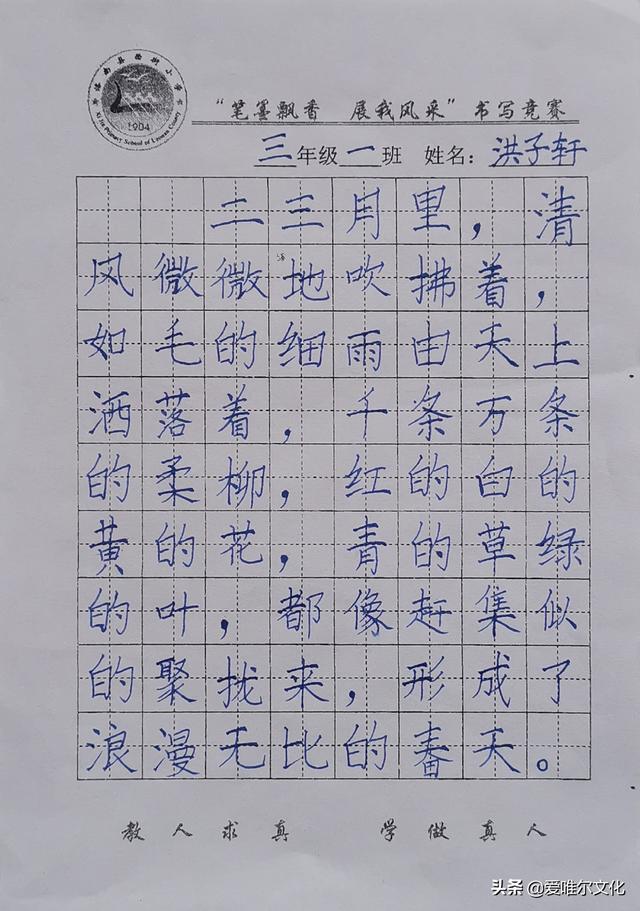 1904
“笔墨飘香 展我风采”书写竞赛
三年级一班 姓名：洪子轩
二三月里，清
风微微地吹拂着，
如毛的细雨由天上
洒落着，千条万条
的柔柳，红的白的
黄的花，青的草绿
的叶，都像赶集似
的聚拢来，形成了
浪漫无比的春天。
教人求真 学做真人
头条 @爱唯尔文化